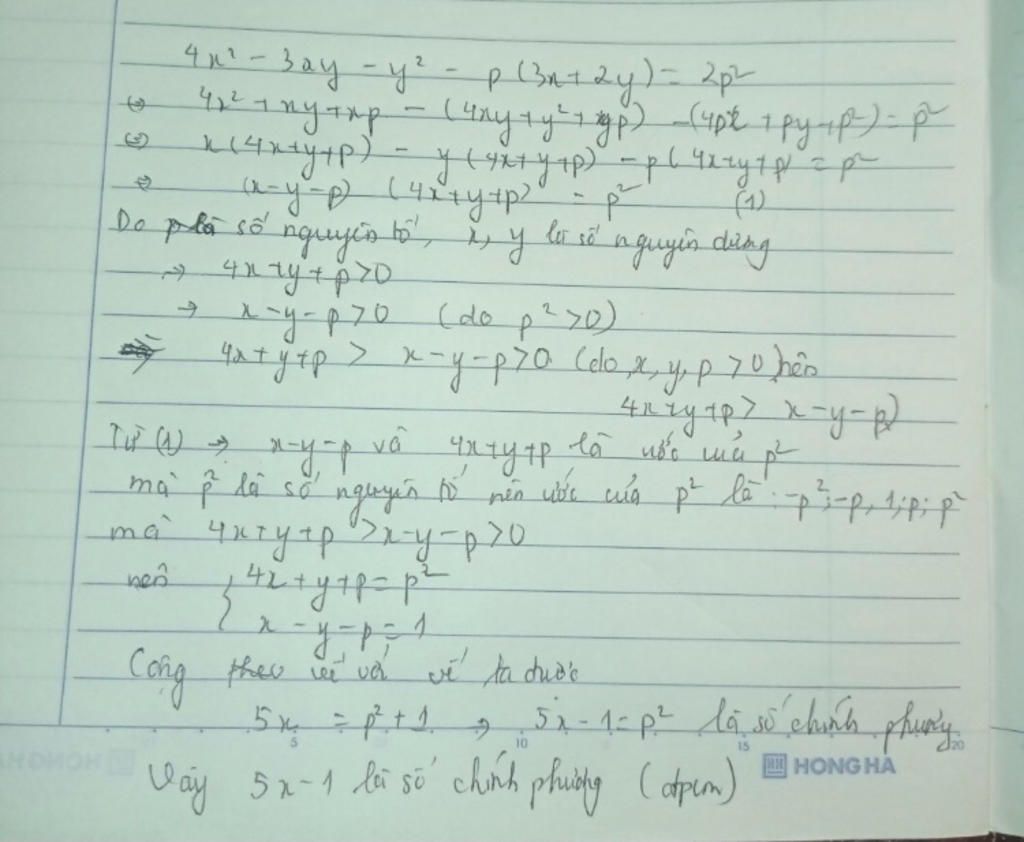 4x² - 3xy - y² - p(3x+2y) = 2p²
⇔ 4x² + xy + xp - (4xy + y² + yp) - (4px + py + p²) = p²
⇔ x(4x+y+p) - y(4x+y+p) - p(4x+y+p) = p²
⇔ (x-y-p) (4x+y+p) = p² (1)
Do p là số nguyên tố, x, y là số nguyên dương
→ 4x+y+p>0
→ x-y-p>0 (do p²>0)
⇒ 4x+y+p > x-y-p>0 (do x, y, p >0 nên
4x+y+p > x-y-p)
Từ (1) → x-y-p và 4x+y+p là ước của p²
mà p² là số nguyên tố nên ước của p² là: -p²; -p, 1; p; p²
mà 4x+y+p >x-y-p>0
nên { 4x+y+p = p²
x-y-p = 1
Cộng theo vế với vế ta được
5x = p²+1 → 5x-1 = p² là số chính phương
5 10 15 20
HONG HA
HONG HA
Vậy 5x-1 là số chính phương (đpcm)